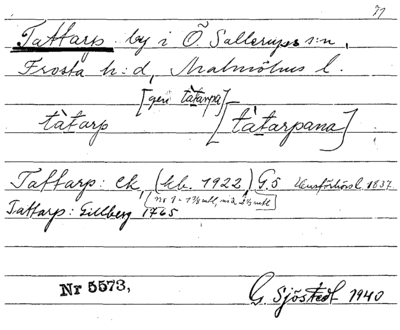 Tattarp by i Ö. Sallerups s:n,
Frosta h:d, Malmöhus l.
[gen tàtarpa]
tàtarp [tàtarpana]
Tattarp: ek, (kb. 1922) G.5 Husförhörsl. 1837
[nr 1 - 1 3/8 mtl, nr 2
Tattarp: Gillberg 1765
Nr 5573,
G. Sjöstedt 1940